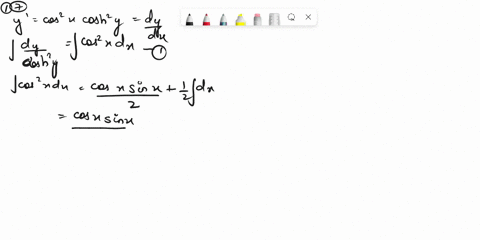 17
y' = cos² x cosh² y = dy/dx
∫ dy/cosh² y = ∫ cos² x dx — 1
∫ cos² x dx = cos x sin x / 2 + 1/2 ∫ dx
= cos x sin x